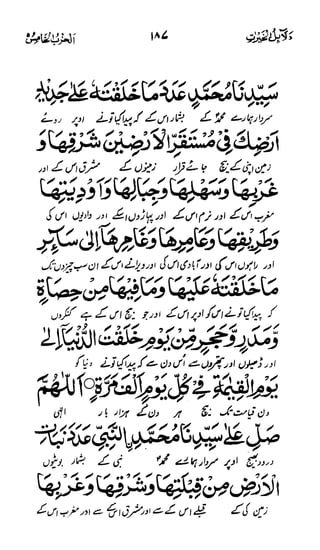 دلائل الخیرات ۱۸۷ الحزب الخامس
سَيِّدِنَا مُحَمَّدٍ عَدَدَ مَا خَلَقْتَهٗ عَلٰى جَدِيْدِ
سردار ہمارے محمد کے بشمار اس کے کہ پیدا کیا تو نے اوپر روئے
اَرْضِكَ فِيْ مُسْتَقَرِّ الْاَرْضِيْنَ شَرْقِهَا وَ
زمین اپنی کے بیچ جائے قرار زمینوں کے مشرق اس کے اور
غَرْبِهَا وَسَهْلِهَا وَجِبَالِهَا وَاَوْدِيَتِهَا
مغرب اس کے اور نرم اس کے اور پہاڑوں اسکے اور وادیوں اس کی
وَطَرِيْقِهَا وَعَامِرِهَا وَغَامِرِهَا اِلٰى سَآئِرِ
اور راہوں اس کی اور آبادی اس کی اور ویرانے اس کے ان سب چیزوں تک
مَا خَلَقْتَهٗ عَلَيْهَا وَمَا فِيْهَا مِنْ حَصَاةٍ
کہ پیدا کیا تو نے اس کو اوپر اس کے اور جو بیچ اس کے ہے کنکروں
وَّمَدَرٍ وَّحَجَرٍ مِّنْ يَوْمِ خَلَقْتَ الدُّنْيَآ اِلٰى
اور ڈھیلوں اور پتھروں سے اس دن سے کہ پیدا کیا تو نے دنیا کو
يَوْمِ الْقِيٰمَةِ فِيْ كُلِّ يَوْمٍ اَلْفَ مَرَّةٍ ۞ اَللّٰهُمَّ
دن قیامت تک بیچ ہر دن کے ہزار بار الٰہی
صَلِّ عَلٰى سَيِّدِنَا مُحَمَّدِ ِۨالنَّبِيِّ عَدَدَ نَبَاتِ
درود بھیج اوپر سردار ہمارے محمد نبی کے بشمار بوٹیوں
الْاَرْضِ مِنْ قِبْلَتِهَا وَشَرْقِهَا وَغَرْبِهَا
زمین کی کے قبلے اس کے سے اور مشرق اس کے سے اور مغرب اس کے